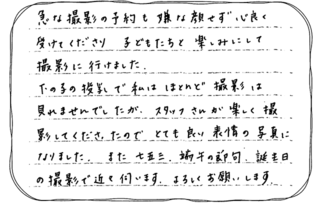 急な撮影の予約も 嫌な顔せず 心良く
受けてくださり 子どもたちと 楽しみにして
撮影に行けました.
下の子の授乳で 私は ほとんど 撮影は
見れませんでしたが、スタッフさんが 楽しく 撮
影してくださったので とても良い 表情の 写真に
なりました. また 七五三、端午の節句、誕生日
の撮影で 近々 伺います. よろしくお願いします.